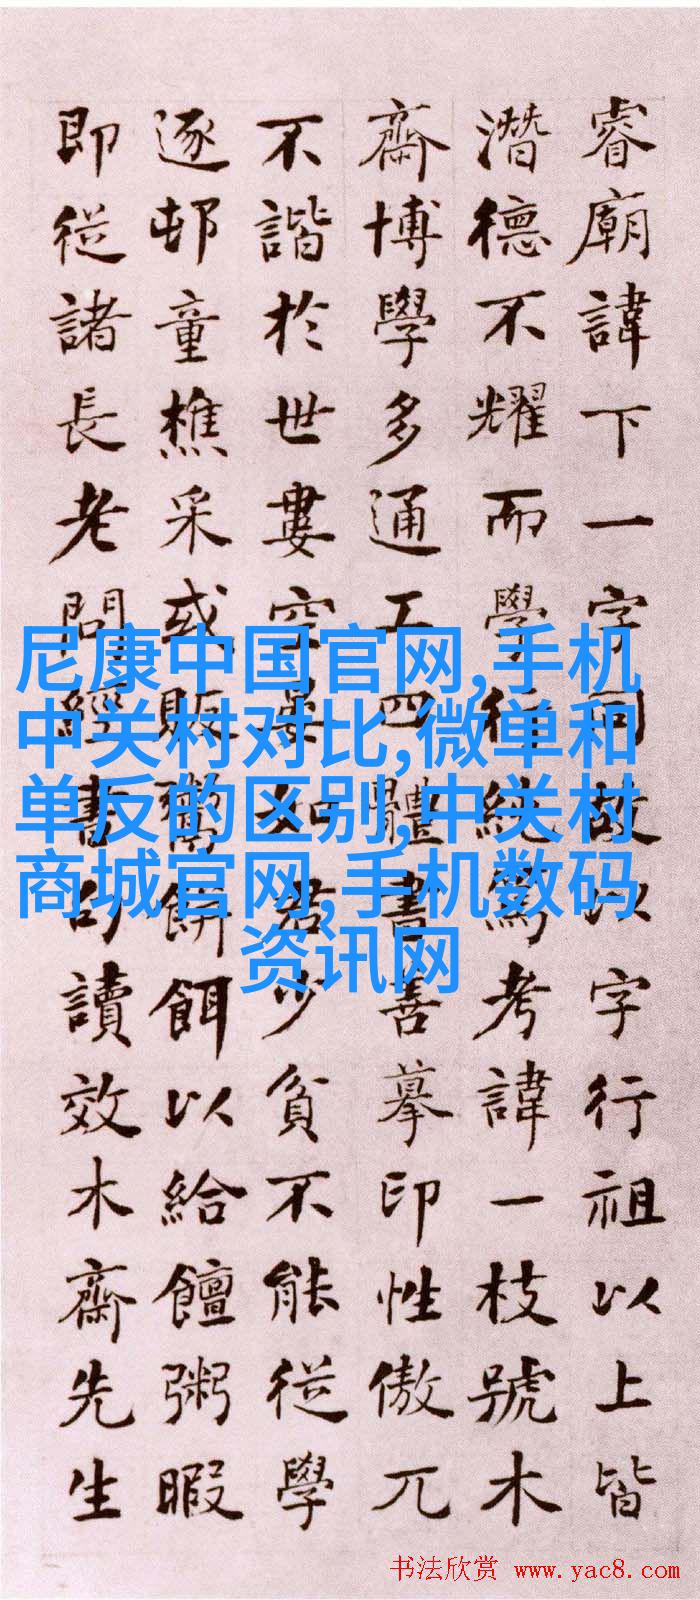 睿廟諱下一字同故以字行祖以上皆
潛德不耀而學行純篤考諱一枝號木
齋博學多通工四體書善摹印性傲兀
不諧於世婁空晏如君少貧不能從學
逐邨童樵采或販鬻餅餌以給饘粥暇
即從諸長老問經書句讀效木齋先生
尼康中国官网,手机
中关村对比,微单和
单反的区别,中关村
商城官网,手机数码
资讯网
书法欣赏 www.yac8.com